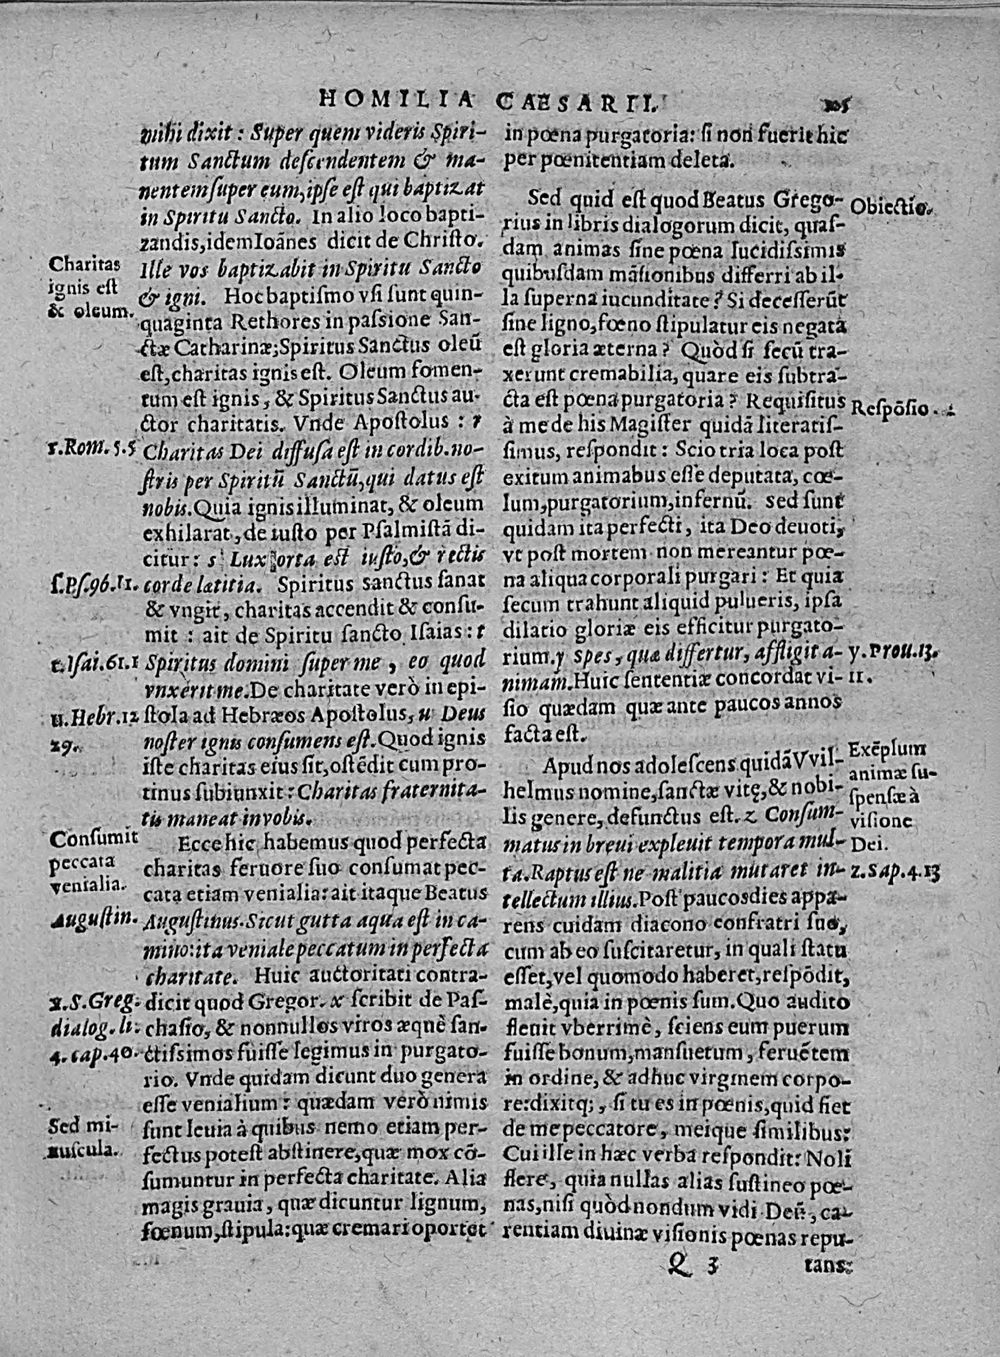 HOMILIA CÆSARII. 105
mihi dixit: Super quem videris Spiri-
tum Sanctum descendentem & ma-
nentem super eum, ipse est qui baptizat
in Spiritu Sancto. In alio loco bapti-
zandis, idem Ioānes dicit de Christo.
Ille vos baptizabit in Spiritu Sancto
& igni. Hoc baptismo vsi sunt quin-
quaginta Rethores in passione San-
ctæ Catharinæ; Spiritus Sanctus oleū
est, charitas ignis est. Oleum fomen-
tum est ignis, & Spiritus Sanctus au-
ctor charitatis. Vnde Apostolus: r
Charitas Dei diffusa est in cordib. no-
stris per Spiritū Sanctū, qui datus est
nobis. Quia ignis illuminat, & oleum
exhilarat, de iusto per Psalmistā di-
citur: s Lux orta est iusto, & rectis
corde lætitia. Spiritus sanctus sanat
& vngit, charitas accendit & consu-
mit: ait de Spiritu sancto Isaias: t
Spiritus domini super me, eo quod
vnxerit me. De charitate verò in epi-
stola ad Hebræos Apostolus, u Deus
noster ignis consumens est. Quod ignis
iste charitas eius sit, ostēdit cum pro-
tinus subiunxit: Charitas fraternita-
tis maneat in vobis.
Ecce hic habemus quod perfecta
charitas feruore suo consumat pec-
cata etiam venialia: ait itaque Beatus
Augustinus. Sicut gutta aquæ est in ca-
mino: ita veniale peccatum in perfecta
charitate. Huic auctoritati contra-
dicit quod Gregor. x scribit de Pas-
chasio, & nonnullos viros æquè san-
ctissimos fuisse legimus in purgato-
rio. Vnde quidam dicunt duo genera
esse venialium: quædam verò nimis
sunt leuia à quibus nemo etiam per-
fectus potest abstinere, quæ mox cō-
sumuntur in perfecta charitate. Alia
magis grauia, quæ dicuntur lignum,
fœnum, stipula: quæ cremari oportet
Charitas
ignis est
& oleum.
r. Rom. 5.5
s. Ps. 96. 11.
t. Isai. 61. 1
u. Hebr. 12
29.
Consumit
peccata
venialia.
Augustin.
x. S. Greg.
dialog. li:
4. cap. 40.
Sed mi-
nuscula.
in pœna purgatoria: si non fuerit hic
per pœnitentiam deleta.
Sed quid est quod Beatus Grego-
rius in libris dialogorum dicit, quas-
dam animas sine pœna lucidissimis
quibusdam māsionibus differri ab il-
la superna iucunditate? Si decesserūt
sine ligno, fœno stipula tur eis negata
est gloria æterna? Quòd si secū tra-
xerunt cremabilia, quare eis subtra-
cta est pœna purgatoria? Requisitus
à me de his Magister quidā literatis-
simus, respondit: Scio tria loca post
exitum animabus esse deputata, cœ-
lum, purgatorium, infernū. Sed sunt
quidam ita perfecti, ita Deo deuoti,
vt post mortem non mereantur pœ-
na aliqua corporali purgari: Et quia
secum trahunt aliquid pulueris, ipsa
dilatio gloriæ eis efficitur purgato-
rium. y Spes, quæ differtur, affligit a-
nimam. Huic sententiæ concordat vi-
sio quædam quæ ante paucos annos
facta est.
Apud nos adolescens quidā Vvil-
helmus nomine, sanctæ vitę, & nobi-
lis genere, defunctus est. z Consum-
matus in breui expleuit tempora mul-
ta. Raptus est ne malitia mutaret in-
tellectum illius. Post paucos dies appa-
rens cuidam diacono confratri suo,
cum ab eo suscitaretur, in quali statu
esset, vel quomodo haberet, respōdit,
malè, quia in pœnis sum. Quo audito
fleuit vberrimè, sciens eum puerum
fuisse bonum, mansuetum, feruētem
in ordine, & adhuc virginem corpo-
re: dixitq;, si tu es in pœnis, quid fiet
de me peccatore, meique similibus:
Cui ille in hæc verba respondit: Noli
flere, quia nullas alias sustineo pœ-
nas, nisi quòd nondum vidi Deū, ca-
rentiam diuinæ visionis pœnas repu-
Obiectio.
Respōsio.
y. Prou. 13.
11.
Exēplum
animæ su-
spensæ à
visione
Dei.
z. Sap. 4. 13
Q 3 tans: